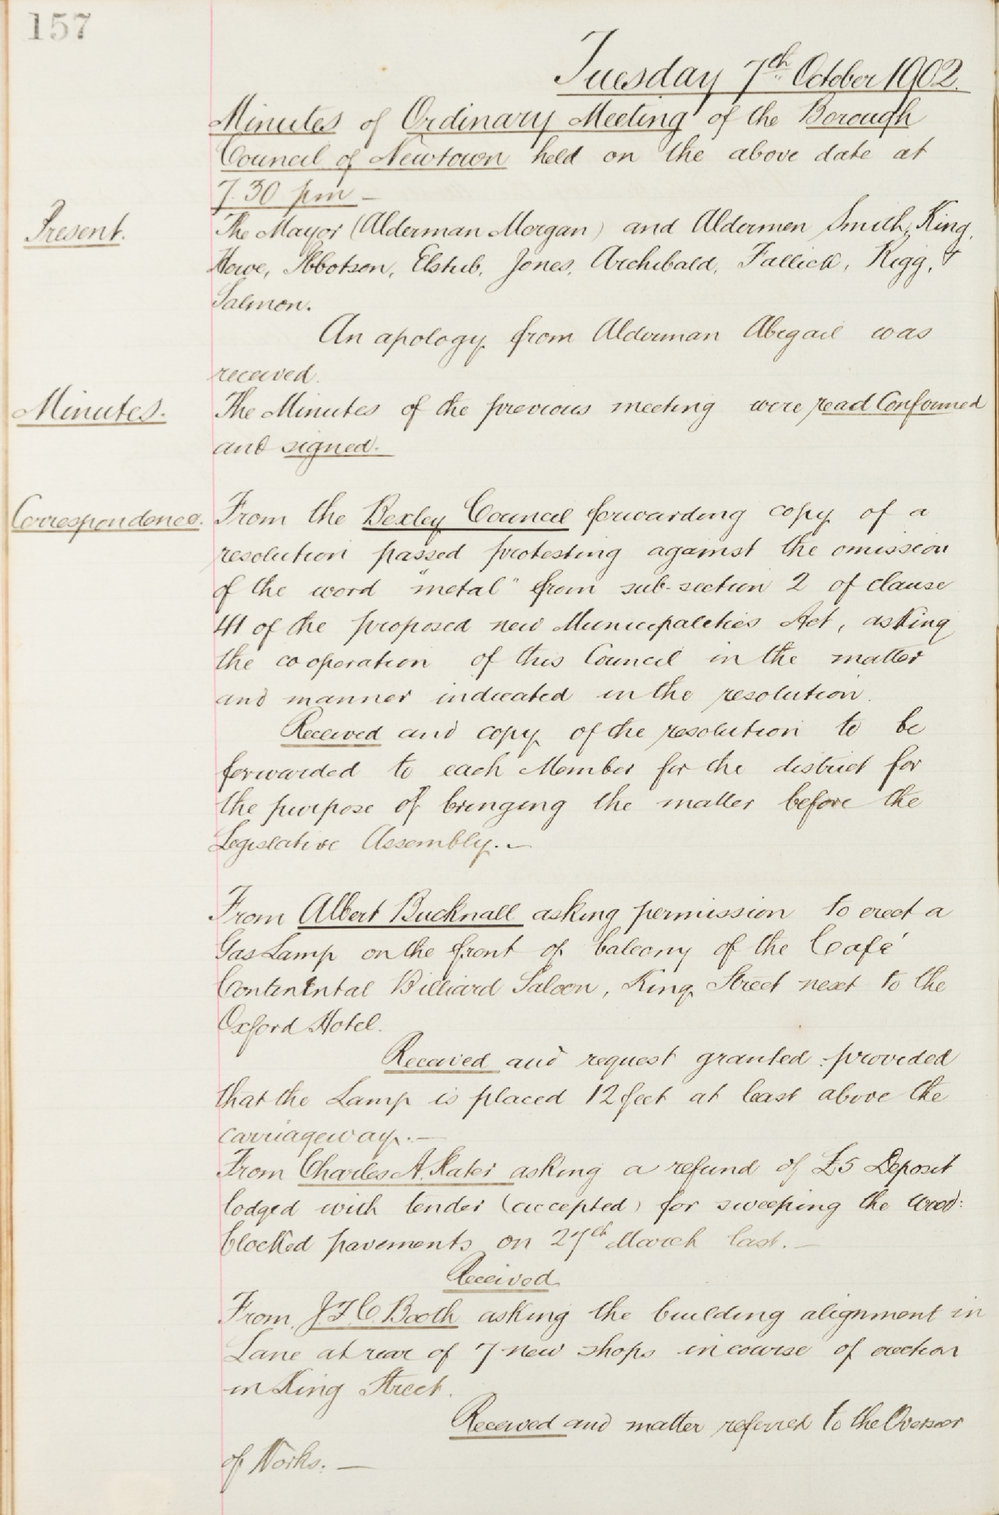 157
Tuesday 7th October 1902.
Minutes of Ordinary Meeting of the Borough
Council of Newtown held on the above date at
7.30 pm —
Present.
The Mayor (Alderman Morgan) and Aldermen Smith, King,
Howe, Ibbotson, Elstub, Jones, Archibald, Fallick, Rigg, &
Salmon.
An apology from Alderman Abigail was
received.
Minutes.
The Minutes of the previous meeting were read Confirmed
and signed. —
Correspondence.
From the Bexley Council forwarding copy of a
resolution passed protesting against the omission
of the word "metal" from sub-section 2 of clause
41 of the proposed new Municipalities Act, asking
the cooperation of this Council in the matter
and manner indicated in the resolution.
Received and copy of the resolution to be
forwarded to each Member for the district for
the purpose of bringing the matter before the
Legislative Assembly. —
From Albert Bucknall asking permission to erect a
Gas Lamp on the front of balcony of the Café
Continental Billiard Saloon, King Street next to the
Oxford Hotel.
Received and request granted provided
that the Lamp is placed 12 feet at least above the
carriageway. —
From Charles A. Kater asking a refund of £5 Deposit
lodged with tender (accepted) for sweeping the wood:
blocked pavements on 27th March last. —
Received
From J F C Booth asking the building alignment in
Lane at rear of 7 new shops in course of erection
in King Street.
Received and matter referred to the Overseer
of Works. —